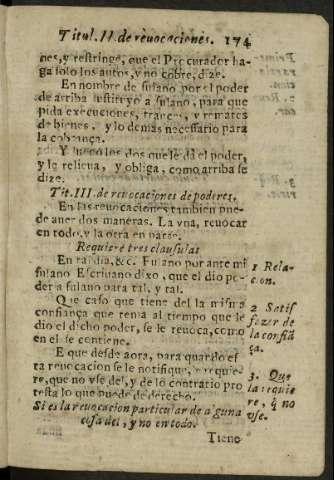 Titul. II de reuocaciones. 174
nes, y restringe, que el Procurador ha-
ga solo los autos, y no cobre, dize.
En nombre de fulano por el poder
de arriba sustituyo a fulano, para que
pida execuciones, trances, y remates
de bienes, y lo demas necessario para
la cobrança.
Y luego los dos que le dà el poder,
y le relieua, y obliga, como arriba se
dize.
Tit. III. de reuocaciones de poderes.
En las reuocaciones tambien pue-
de auer dos maneras. La vna, reuocar
en todo, y la otra en parte.
Requiere tres clausulas
En tal dia, &c. Fulano por ante mi
fulano Escriuano dixo, que el dio po-
der a fulano para tal, y tal.
1 Rela-
cion.
Que caso que tiene del la misma
confiança que tenia al tiempo que le
dio el dicho poder, se le reuoca, como
en el se contiene.
2 Satis
fazer de
la confiã
ça.
E que desde aora, para quando esta
reuocacion se le notifique, requie-
re, que no vse del, y de lo contrario pro
testa lo que puede de derecho.
3. Que
la requie
re, q̃ no
vse.
Si es la reuocacion particular de alguna
cosa del, y no en todo.
Tiene